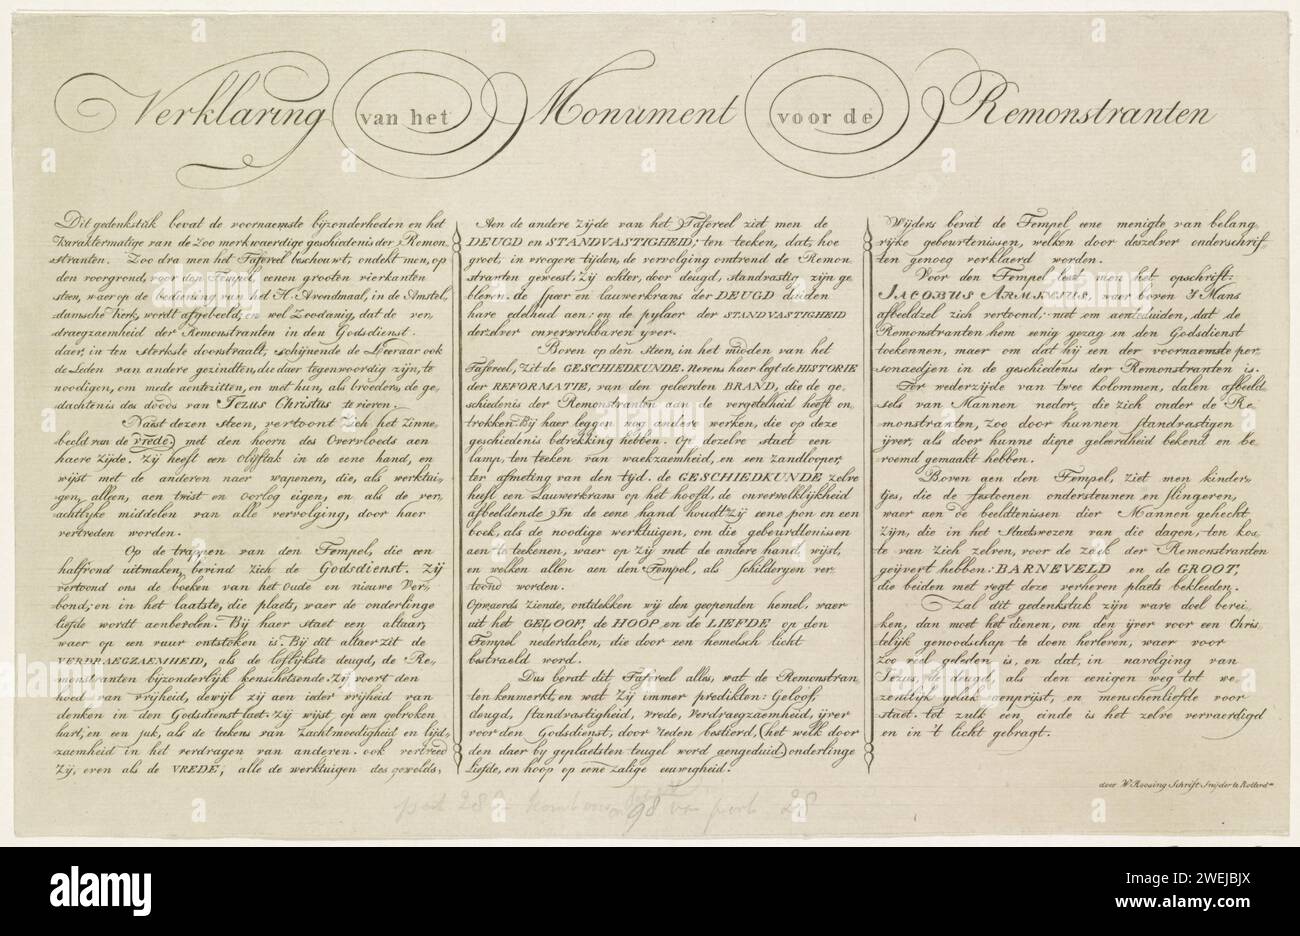 Verklaring van het Monument voor de Remonstranten
Dit gedenkstuk bevat de voornaemste bijzonderheden en het
Karaktermatige van de zoo merkwaerdige geschiedenis der Remon-
stranten. Zoo dra men het Tafereel beschouwt, ondekt men, op
den voorgrond, voor den Tempel, eenen grooten vierkanten
steen, waer op de bediening van het H. Avondmaal, in de Amstel,
damsche Kerk, wordt afgebeeld; en wel Zoodanig, dat de ver,
draegzaemheid der Remonstranten in den Godsdienst.
daer, in ten sterkste doorstraalt; schijnende de Leeraar ook
de Leden van andere gezindten, die daer tegenwoordig zijn, te
noodigen, om mede aentezitten, en met hun, als broeders, de ge,
dachtenis des doods van Jezus Christus te vieren.
Naast dezen steen, vertoont zich het Zinne-
beeld van de vrede, met den hoorn des Overvloeds aen
haere zijde. Zij heeft een Olijftak in de eene hand, en
wijst met de anderen naer wapenen, die, als werktui-
gen, alleen, aen twist en oorlog eigen, en als de ver,
achtlyke middelen van alle vervolging, door haer
vertreden worden.
Op de trappen van den Tempel, die een
halfrond uitmaken, bevind zich de Godsdienst. Zij
vertoond ons de boeken van het oude en nieuwe Ver-
bond; en in het laatste, die plaets, waer de onderlinge
liefde wordt aenbevolen. Bij haer staet een altaar,
waer op een vuur ontstoken is. Bij dit altaer zit de
VERDRAEGZAEMHEID, als de loflijkste deugd, de Re,
monstranten bijzonderlijk kenschetsende. Zij voert den
hoed van vrijheid, dewijl zij aen ieder vrijheid van
denken in den Godsdienst laet. Zij wijst op een gebroken
hart, en een juk, als de teekens van Zachtmoedigheid en lijd,
zaemheid in het verdragen van anderen. ook vertreed
Zij, even als de VREDE, alle de werktuigen des gewelds,
Aen de andere zijde van het Tafereel ziet men de
DEUGD en STANDVASTIGHEID; ten teeken, dat, hoe
groot, in vroegere tijden, de vervolging omtrend de Remon-
stranten geweest, zij echter, door deugd, standvastig zijn ge
bleven. de Speer en lauwerkrans der DEUGD duiden
hare edelheid aen; en de pylaer der STANDVASTIGHEID
derzelver onverwrikbaren yver.
Boven op den steen, in het midden van het
Tafereel, zit de GESCHIEDKUNDE. Nevens haer legt de HISTORIE
der REFORMATIE, van den geleerden BRAND, die de ge-
schiedenis der Remonstranten aan de vergetelheid heeft on
trokken. Bij haer leggen nog andere werken, die op deze
geschiedenis betrekking hebben. Op dezelve staet een
lamp, ten teeken van waekzaemheid, en een zandlooper,
ter afmeting van den tijd. de GESCHIEDKUNDE zelve
heeft een Lauwerkrans op het hoofd, de onverwelklijkheid
afbeeldende. In de eene hand houdt zij eene pen en een
boek, als de noodige werktuigen, om die gebeurdlenissen
aen te teekenen, waer op zij met de andere hand, wijst,
en welken allen aen den Tempel, als schilderyen ver-
toond worden.
Opwaerds ziende, ontdekken wij den geopenden hemel, waer
uit het GELOOF, de HOOP en de LIEFDE op den
Tempel nederdalen, die door een hemelsch licht
bestraeld word.
Dus bevat dit Tafereel alles, wat de Remonstran
ten kenmerkt, en wat zij immer predikten: Geloof,
deugd, standvastigheid, vrede, verdraegzaemheid, ijver
voor den Godsdienst, door reden bestierd, (het welk door
den daer by geplaetsten teugel word aengeduid) onderlinge
Liefde, en hoop op eene zalige eeuwigheid.
Wijders bevat de Tempel eene menigte van belang
rijke gebeurtenissen, welken door deszelver onderschrif,
ten genoeg verklaerd worden.
Voor den Tempel leest men het opschrift:
JACOBUS ARMINIUS, waer boven 's Mans
afbeeldzel zich vertoond; niet om aenteduiden, dat de
Remonstranten hem eenig gezag in den Godsdienst
toekennen, maer om dat hij een der voornaemste per,
sonaedjen in de geschiedenis der Remonstranten is.
Ter wederzijde van twee kolommen, dalen afbeeld
sels van Mannen neder, die zich onder de Re,
monstranten, zoo door hunnen standvastigen
ijver, als door hunne diepe geleerdheid bekend en be
roemd gemaakt hebben.
Boven aen den Tempel, ziet men kinder-
tjes, die de festoenen ondersteunen en slingeren,
waer aen de beeldtenissen dier Mannen gehecht
zijn, die in het Staatswezen van die dagen, ten kos,
te van zich zelven, voor de zaek der Remonstranten
geijvert hebben: BARNEVELD en de GROOT,
die beiden met regt deze verheven plaets bekleeden.
Zal dit gedenkstuk zijn ware doel berei-
ken, dan moet het dienen, om den ijver voor een Chris
telijk genoodschap te doen herleven, waer voor
zoo veel geleden is, en dat, in navolging van
Jezus, de deugd, als den eenigen weg tot we
zendlijk geluk aenprijst, en menschenliefde voor
staet. tot zulk een einde is het zelve vervaerdigd
en in 't licht gebragt.
door W. Roosing Schrift Snijder te Rotterdm
98 van port 28
alamy
Image ID: 2WEJBJX
www.alamy.com